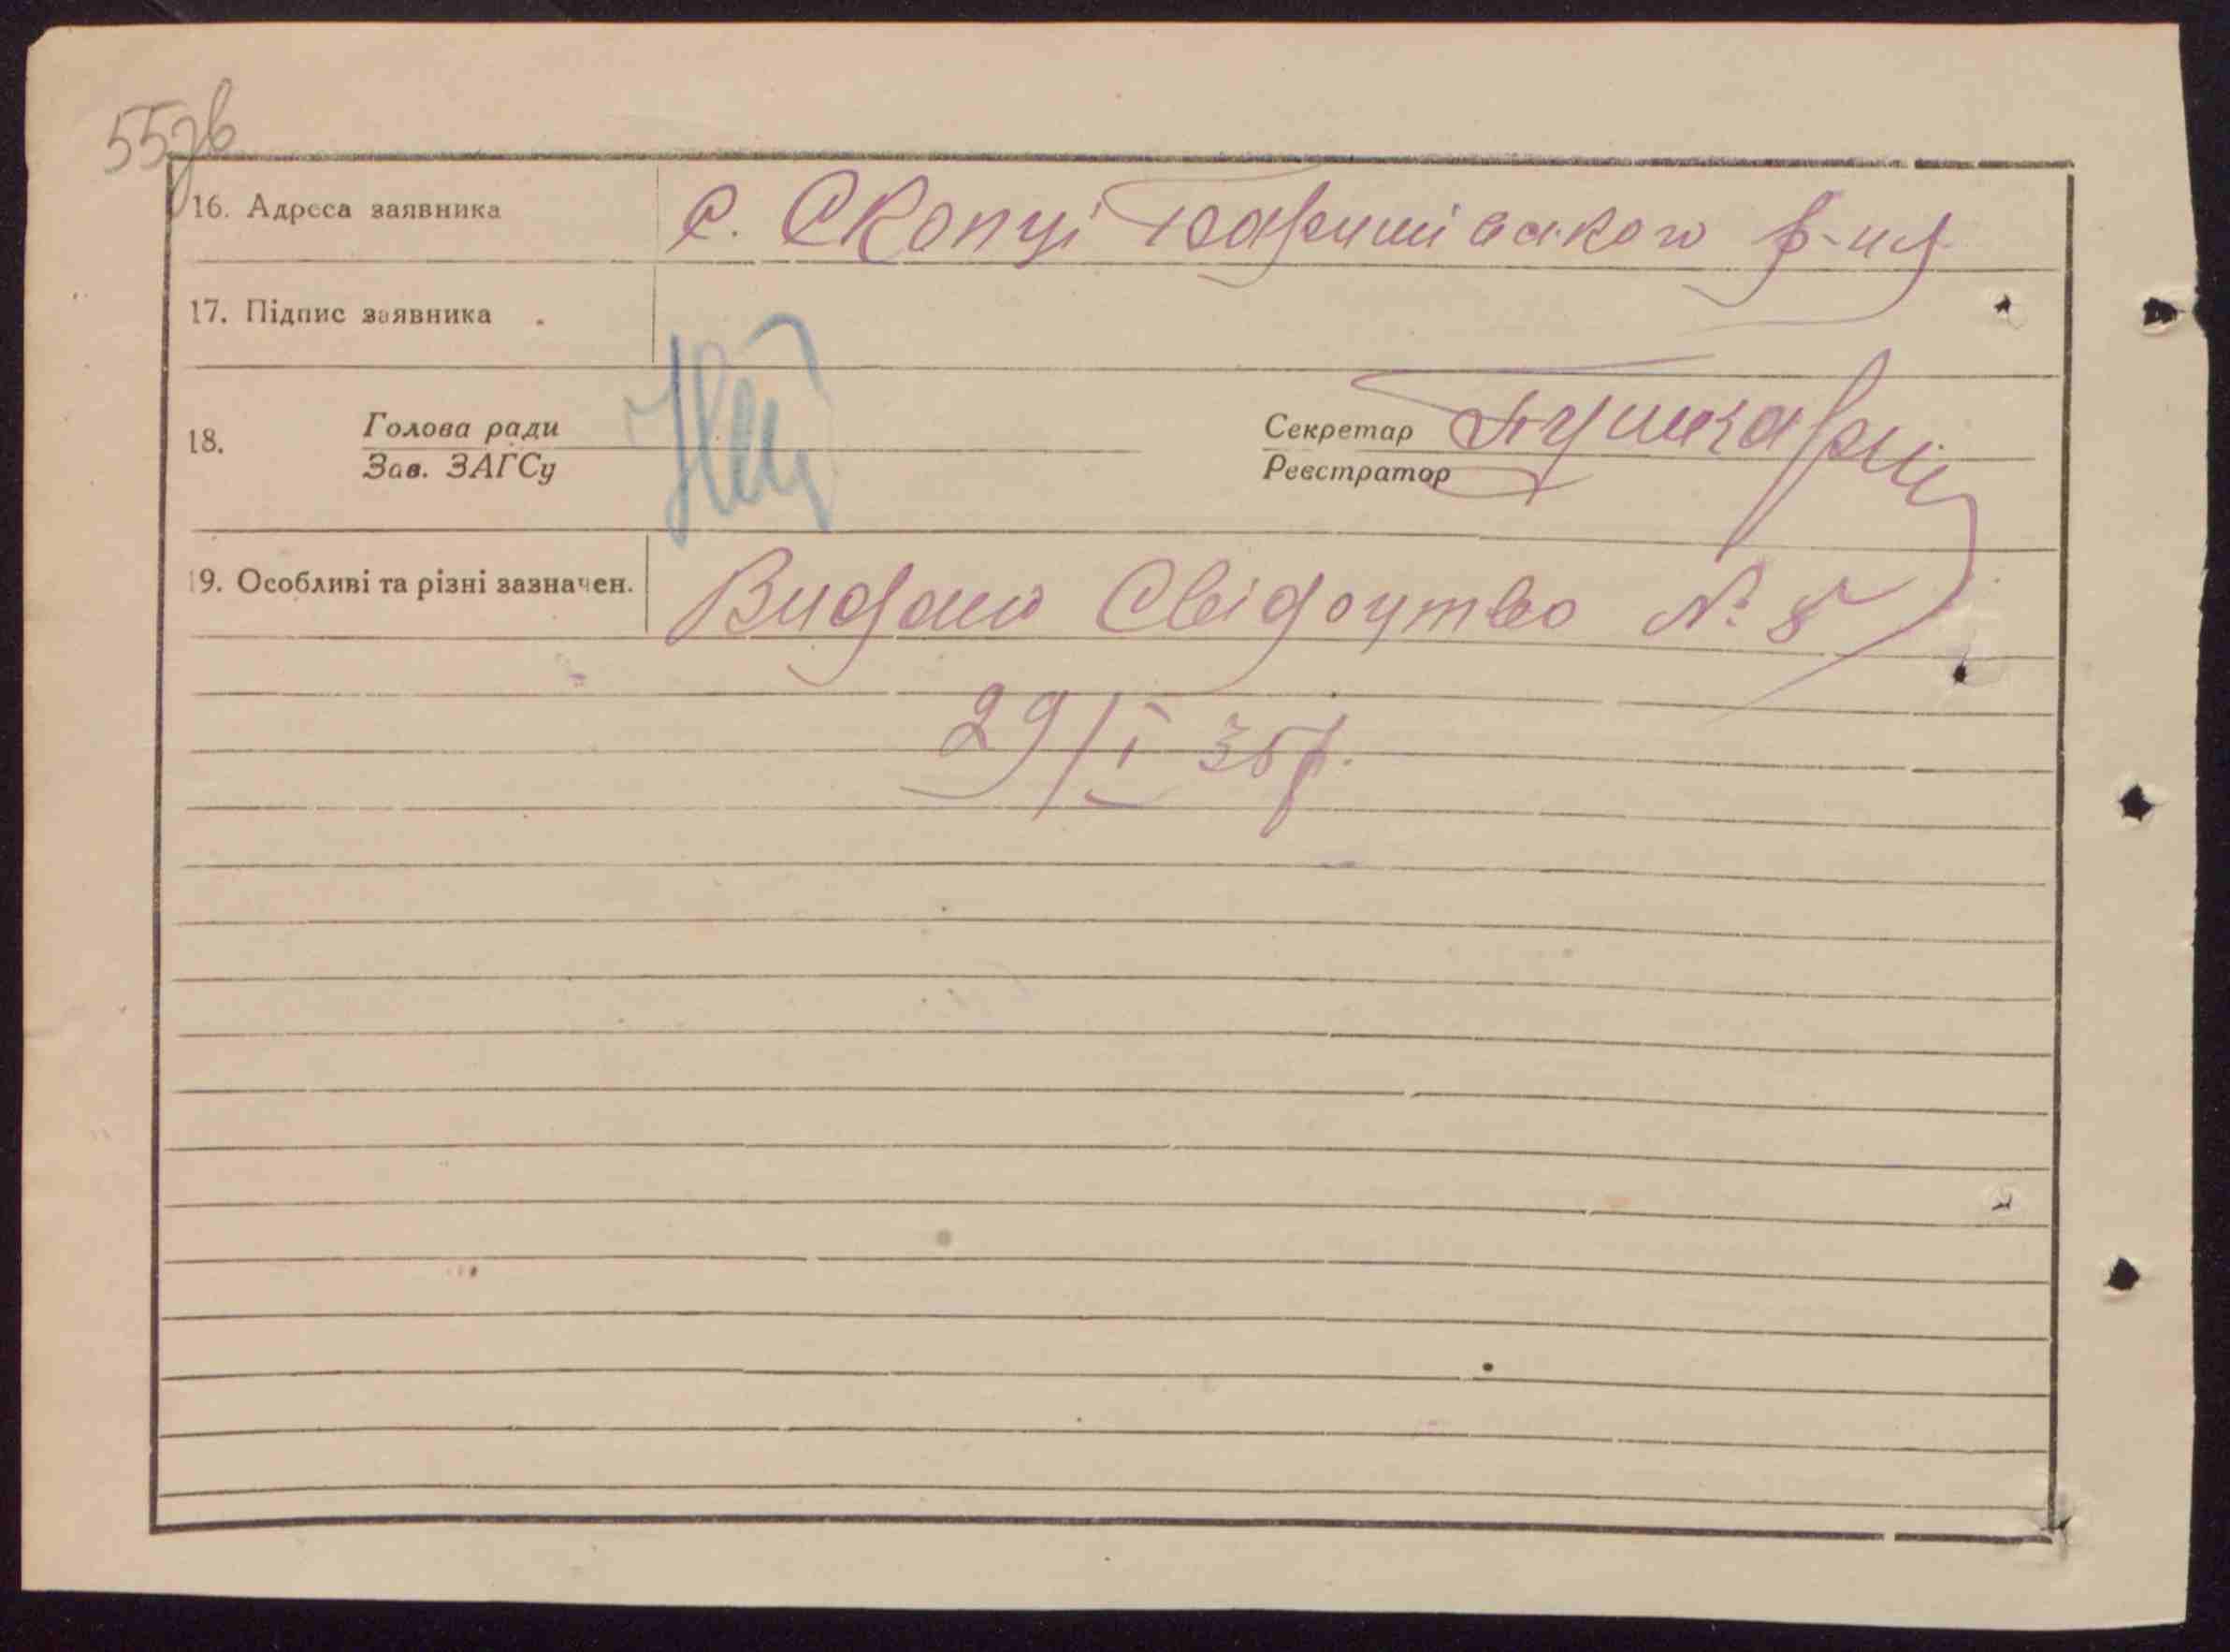 55зв
16. Адреса заявника с. Скопці Баришівського р-ну
17. Підпис заявника
18. Голова ради Секретар Пушкарь
Зав. ЗАГСу Реєстратор
19. Особливі та різні зазначен. Видано Свідоцтво № 8
29/I 35р.